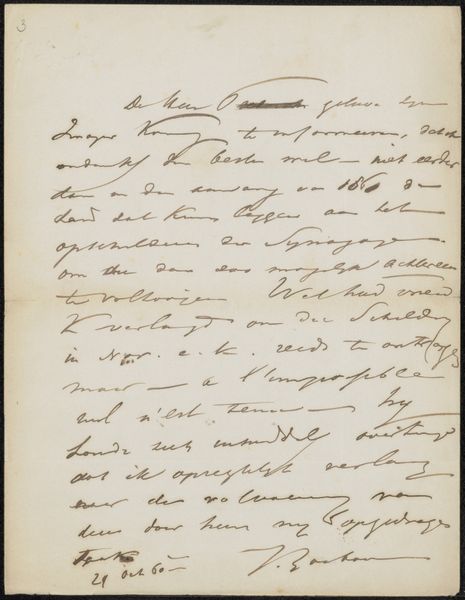 3
De Heer geloove zyn
te informeeren, dat ik
ondanks den besten wil – niet eerder
dan in den aanvang van 1861 de
hand dat kunne leggen aan het
opschilderen der Synagoge
om die dan zoo mogelijk achtereen
te voltooijen
K verlangd om die Schildery
in Nov. e. k. reeds te ontvangen
maar – a l'impossible
nul n'est tenu – hy
houde zich inmiddels overtuigd
dat ik opregtelyk verlang
naar de volvoering van
deze door hem my opgedragen
taak
29 Oct 60 – J. Bosboom